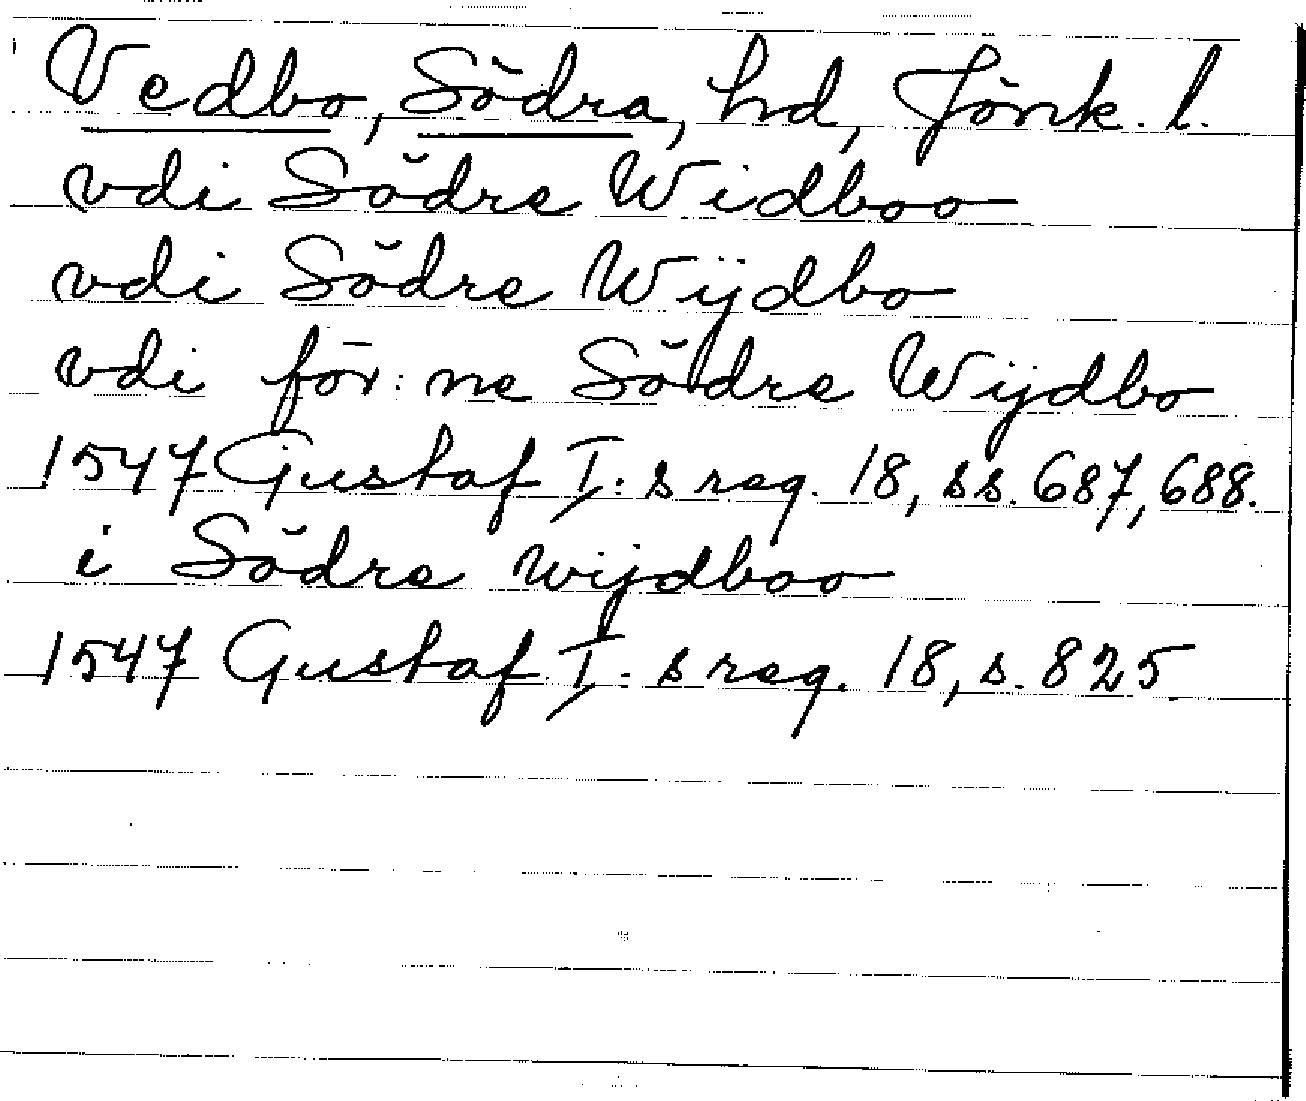 Vedbo, Södra, hd, Jönk. l.
vdi Södre Widboo
vdi Södre Wijdbo
vdi för:ne Södre Wijdbo
1547 Gustaf I:s reg. 18, ss. 687, 688.
i Södre wijdboo
1547 Gustaf I:s reg. 18, s. 825